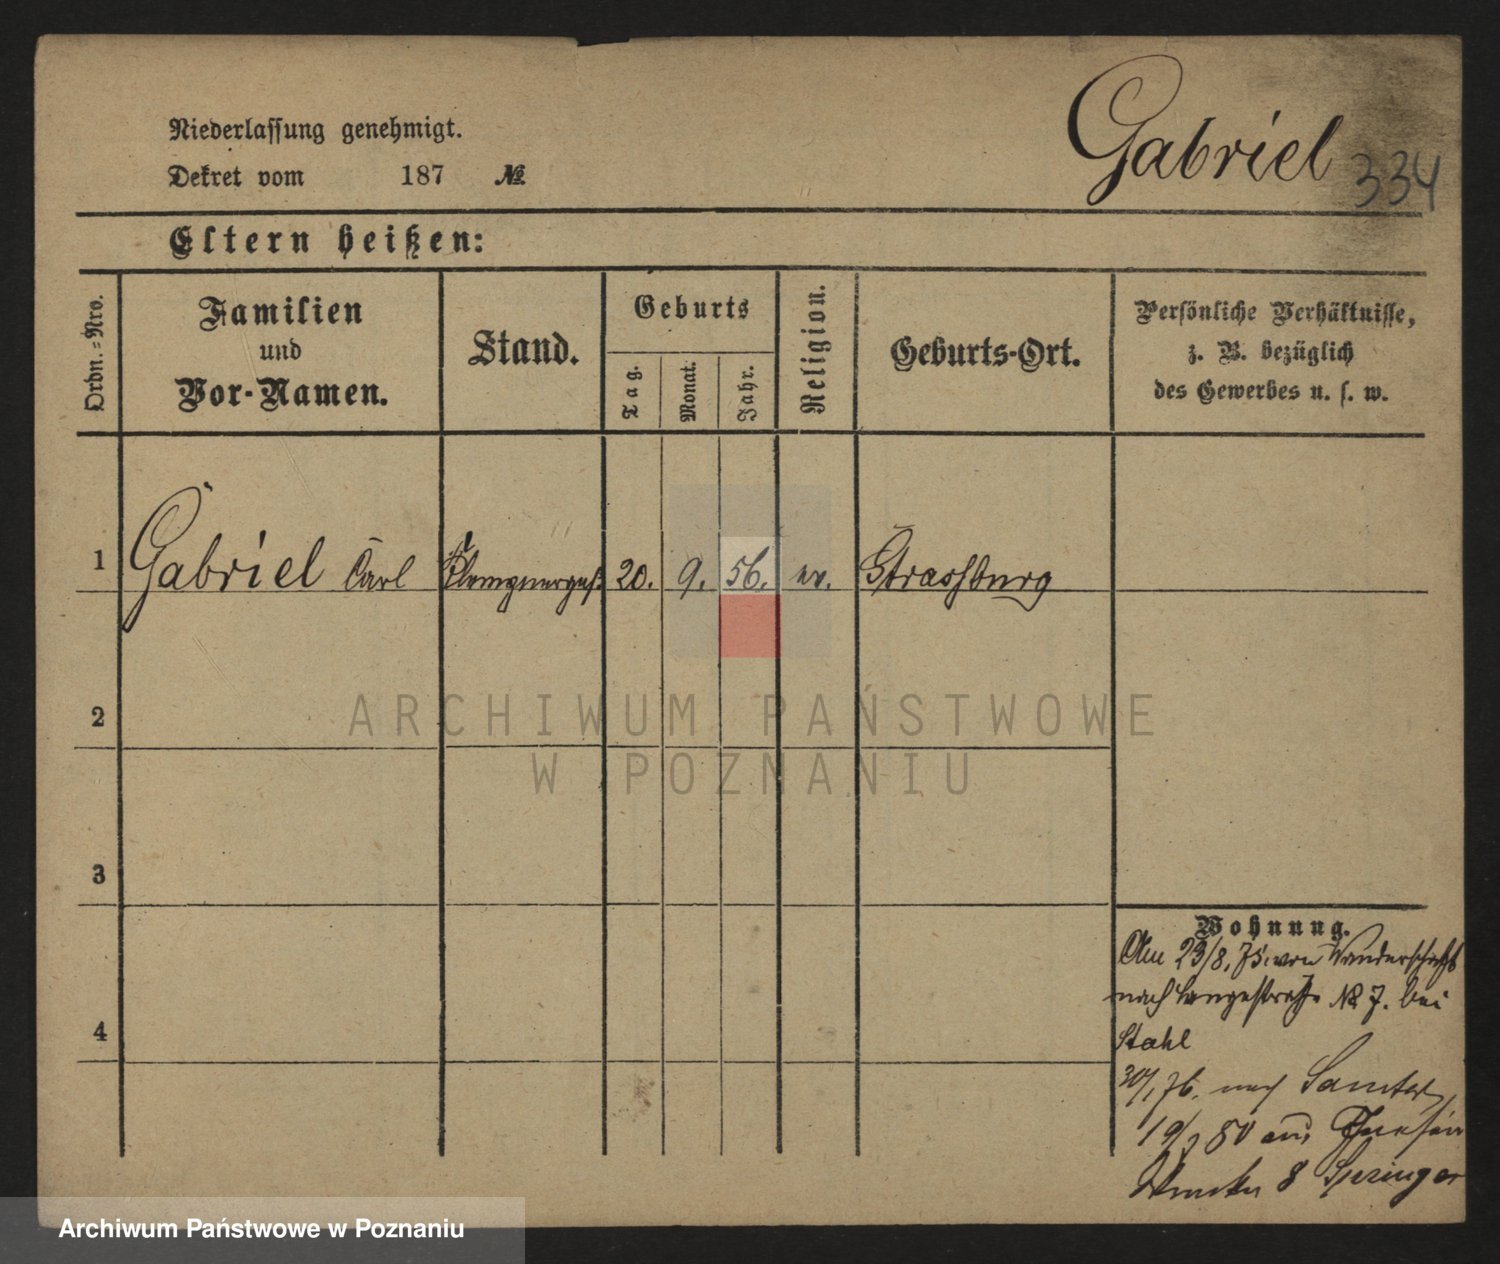 Niederlassung genehmigt.
Dekret vom 187 №
Gabriel 334
Eltern heißen:
Ordn.-Nro.
Familien
und
Vor-Namen.
Stand.
Geburts
Tag.
Monat.
Jahr.
Religion.
Geburts-Ort.
Persönliche Verhältnisse,
z. B. bezüglich
des Gewerbes u. s. w.
1 Gabriel Carl Klempnerges. 20. 9. 56. ev. Strassburg
2
3
4
Wohnung.
Am 23/8. 75. von Wanderschaft
nach Langestraße № 7. bei
Stahl
30/1 76. nach Samter
19/ 80 aus Gnesen
8 Springer
ARCHIWUM PAŃSTWOWE
W POZNANIU
Archiwum Państwowe w Poznaniu